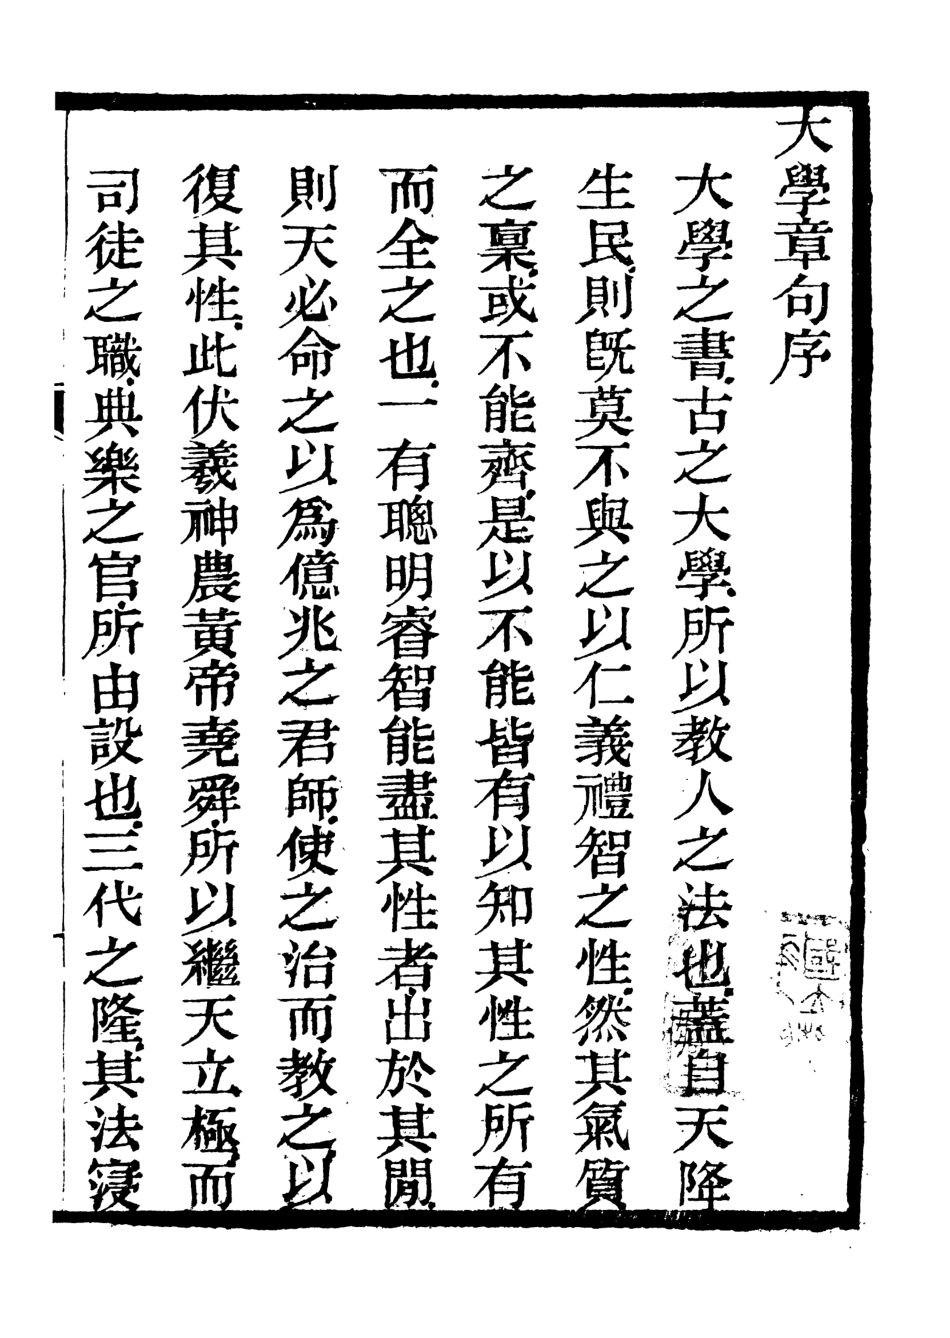 大學章句序
大學之書.古之大學.所以教人之法也.蓋自天降
生民.則旣莫不與之以仁義禮智之性.然其氣質
之稟.或不能齊.是以不能皆有以知其性之所有
而全之也.一有聰明睿智能盡其性者.出於其閒.
則天必命之以爲億兆之君師.使之治而教之.以
復其性.此伏羲神農黃帝堯舜.所以繼天立極.而
司徒之職.典樂之官.所由設也.三代之隆.其法寖